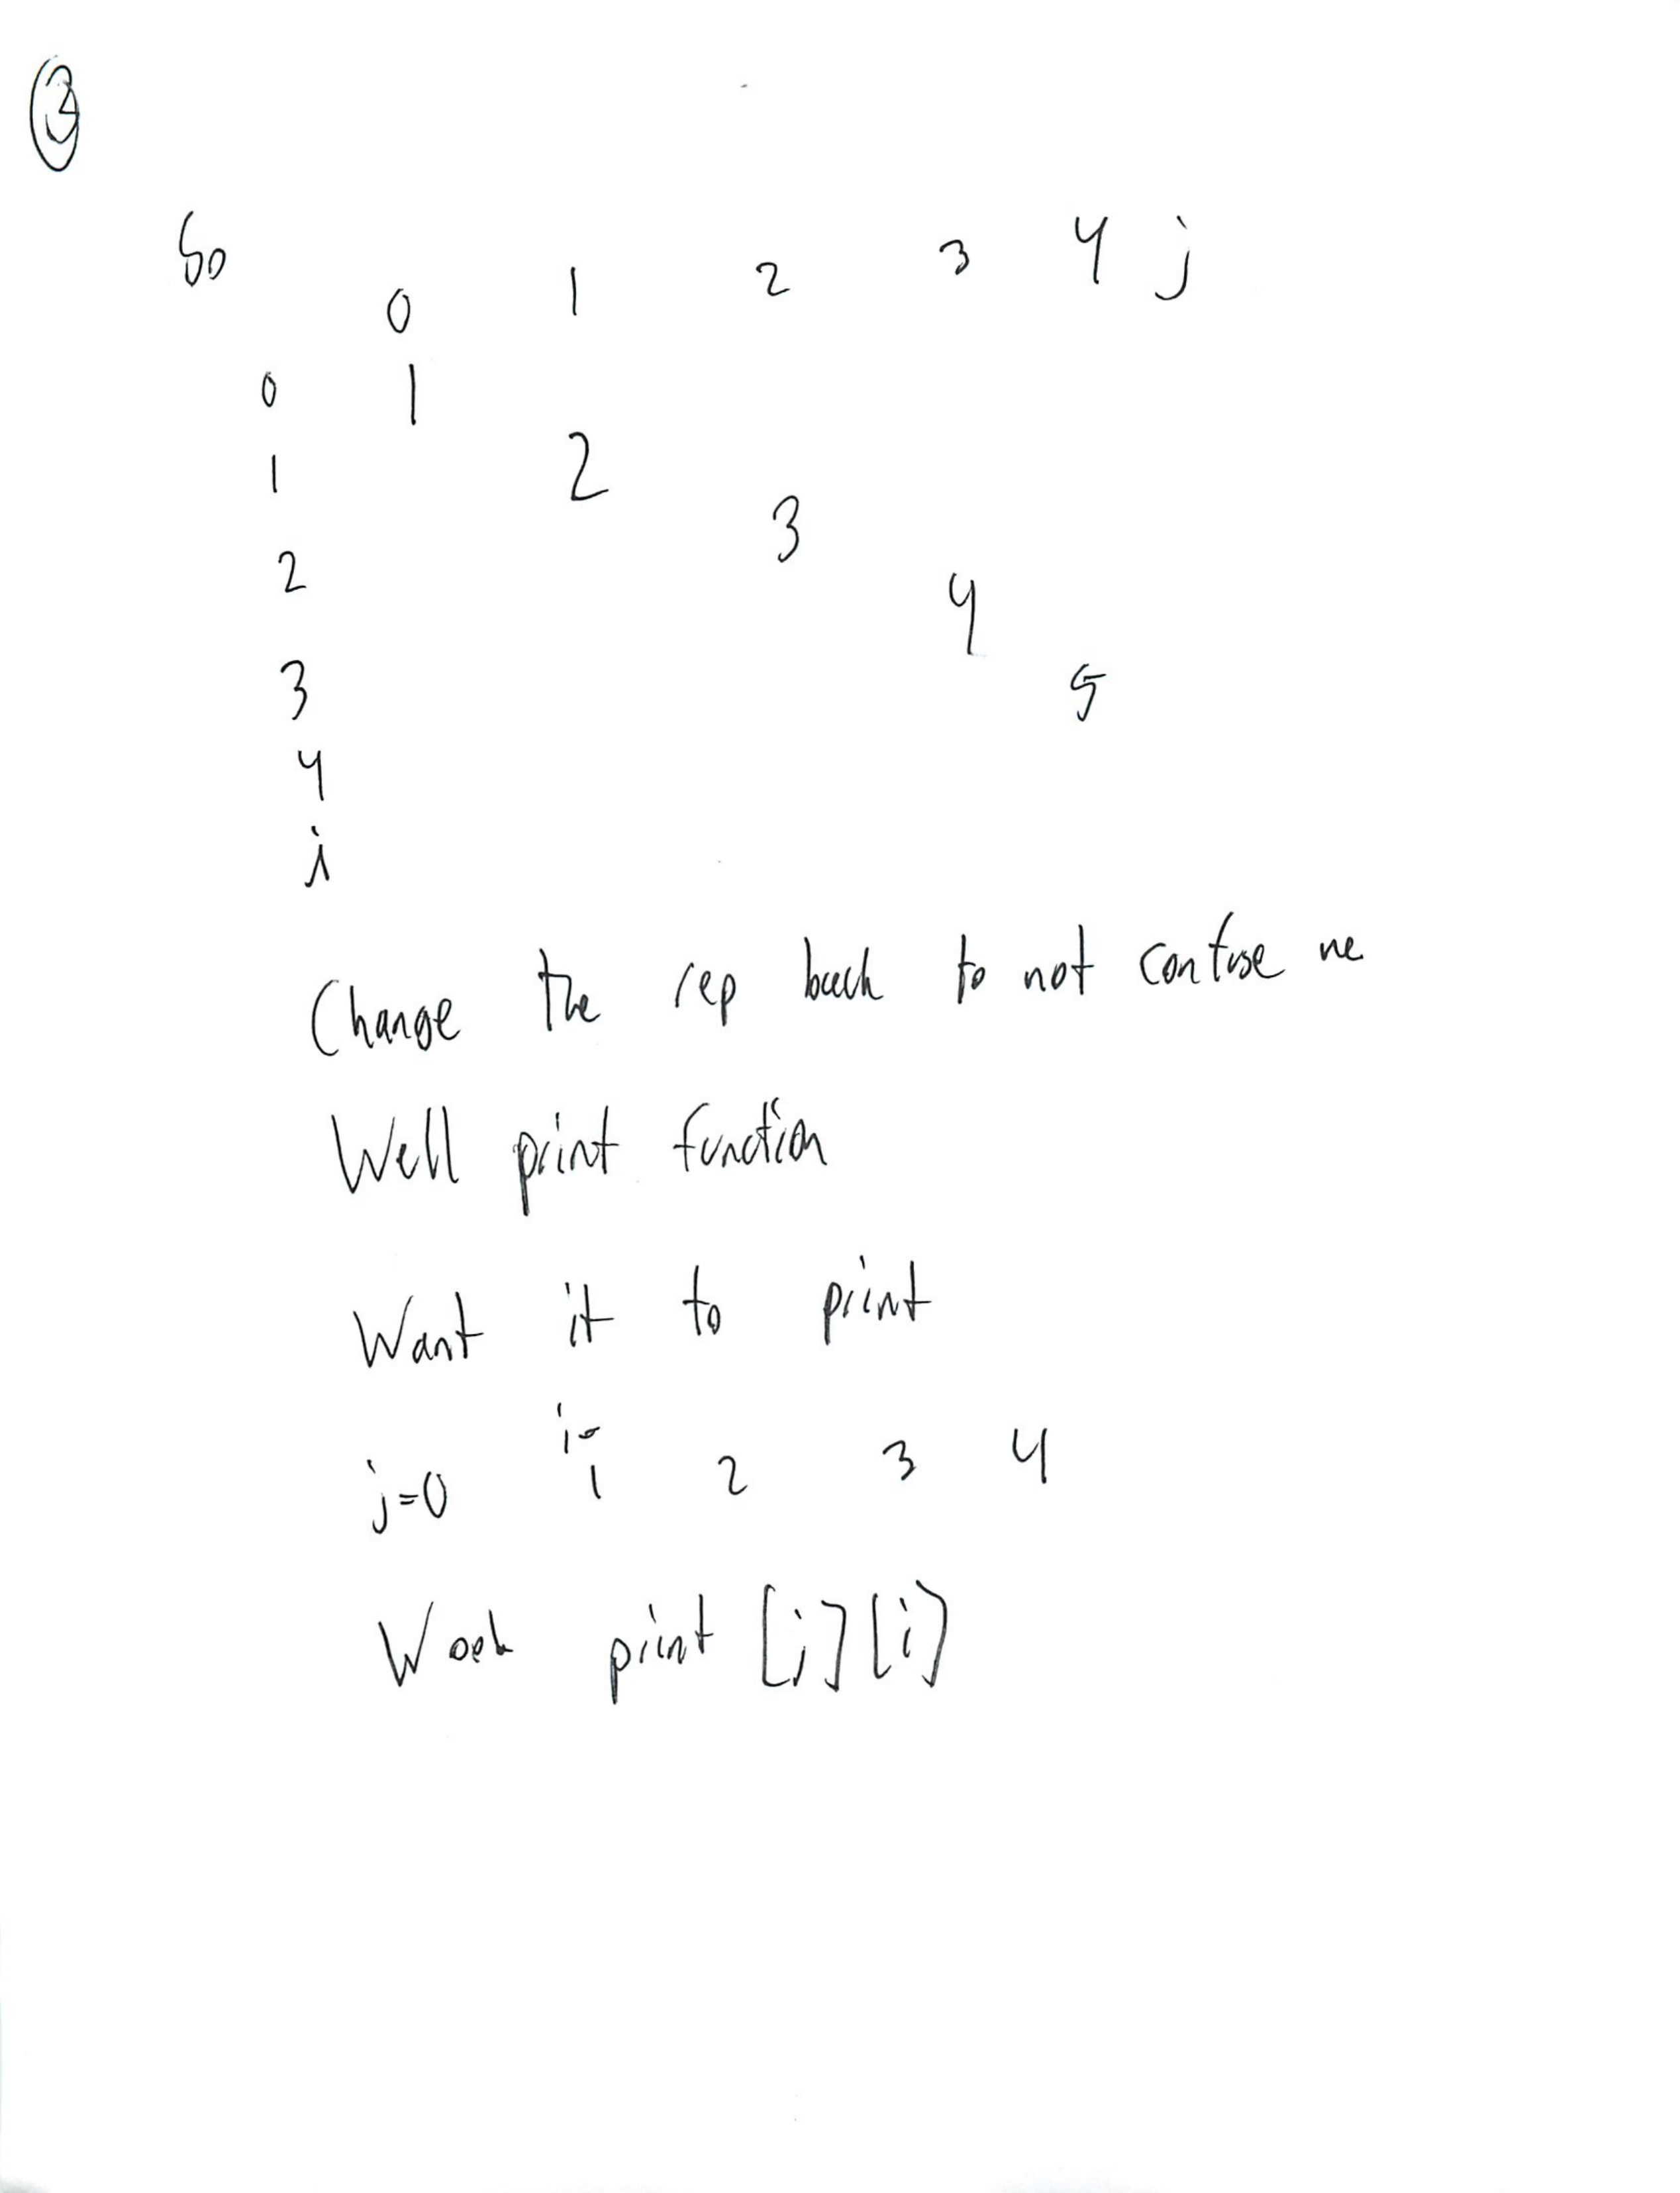 So
0 1 2 3 4 j
0 1
1 2
2 3
3 4
4 5
i
Change the rep back to not confuse me
Well print function
Want it to print
i=
j=0 1 2 3 4
print [j][i]